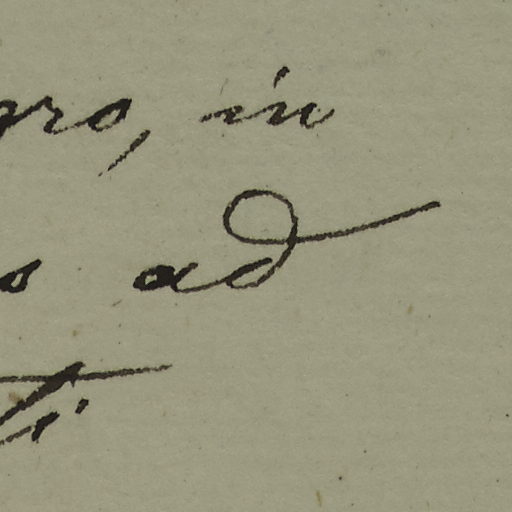 gro, in
o ad
ti